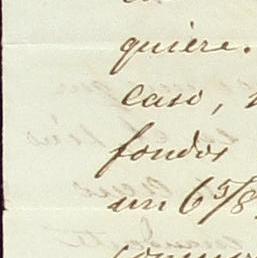 quiere.
caso,
fondos
un 6 5/8